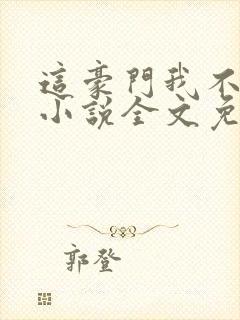 這豪門我不
小說全文免
郭登